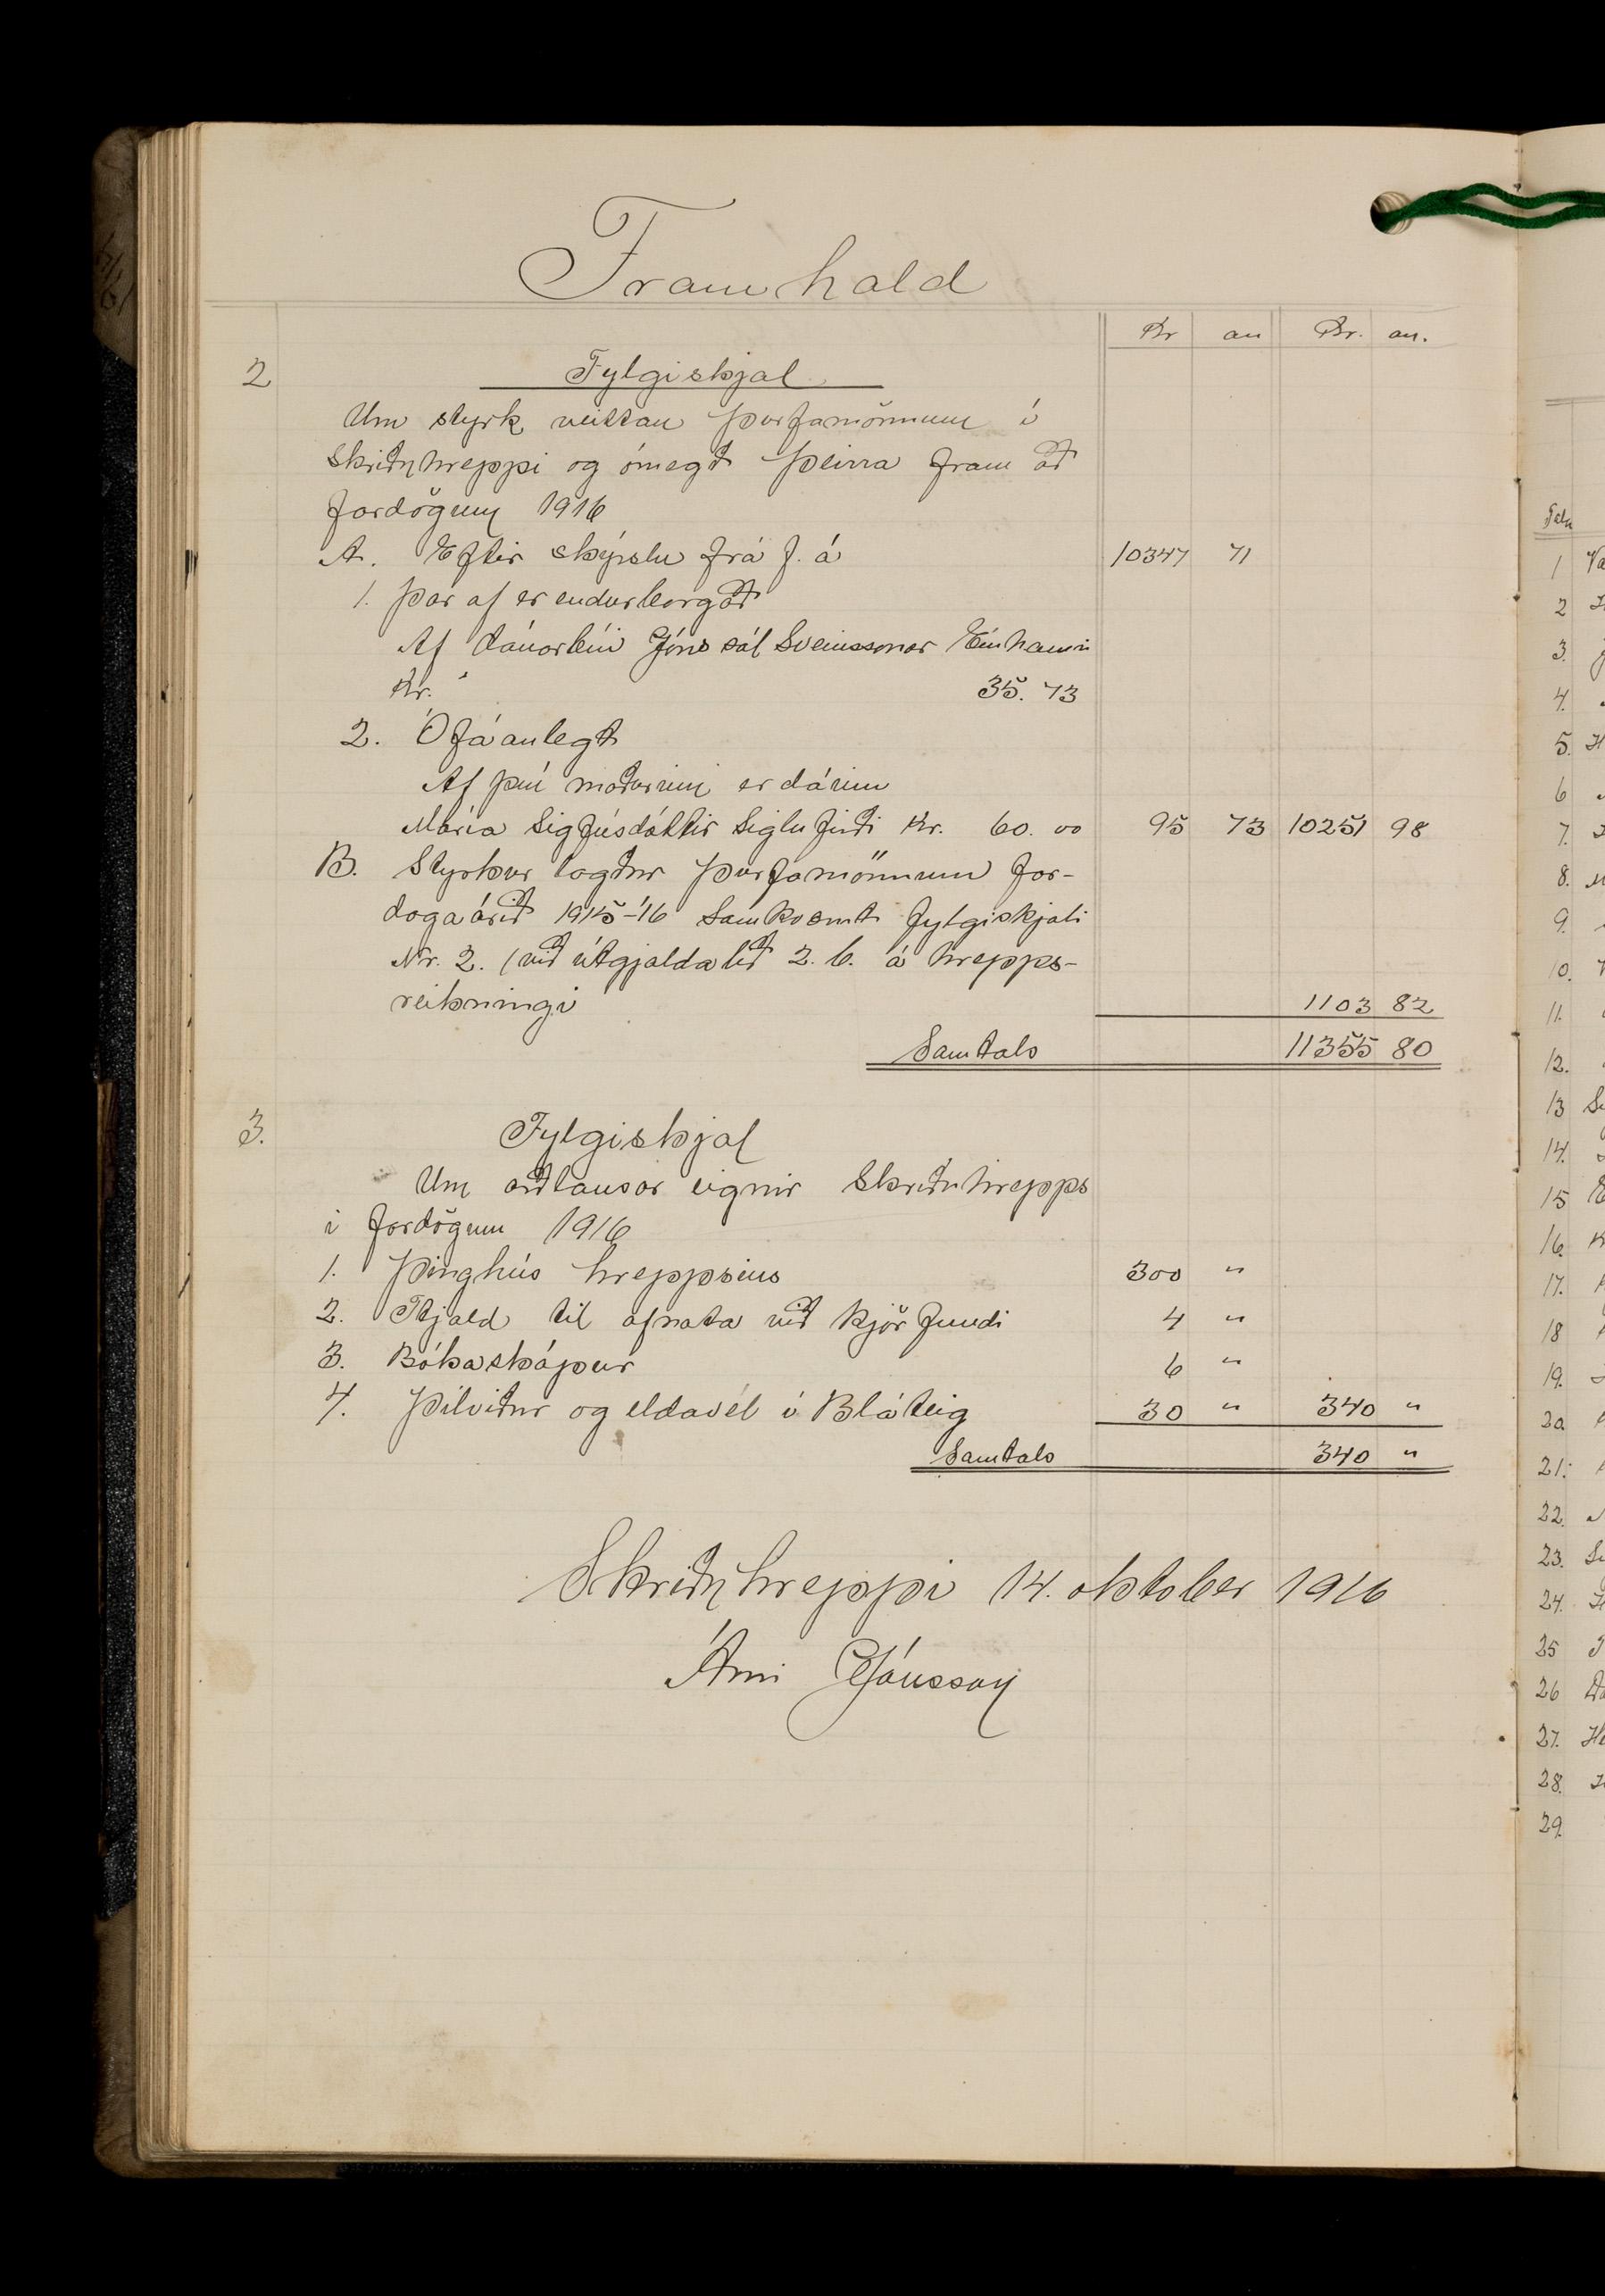 Framhald
Kr au Kr. au.
2 Fylgiskjal
Um styrk veittan þurfamönnum í
Skriðuhreppi og ómegð þeirra fram að
fardögum 1916
A. Eftir skýrslu frá f. á 10347 71
1. Þar af er endurborgað
Af dánarbúi Jóns sál Sveinssonar Einhamri
Kr. 35.73
2. Ófáanlegt
Af því maðurinn er dáinn
María Sigfúsdóttir Siglufirði Kr. 60.00 95 73 10251 98
B. Styrkur lagður þurfamönnum far-
dagaárið 1915-'16 samkvæmt fylgiskjali
Nr. 2. (við útgjaldalið 2. b. á hrepps-
reikningi 1103 82
Samtals 11355 80
3. Fylgiskjal
Um arðlausar eignir Skriðuhrepps
í fardögum 1916
1. Þinghús hreppsins 300 "
2. Tjald til afnota við kjörfundi 4 "
3. Bókaskápur 6 "
4. Þilviður og eldavél í Bláteig 30 " 340 "
Samtals 340 "
Skriðuhreppi 14. oktober 1916
Árni Jónsson
Tala
1
2
3.
4.
5.
6
7.
8.
9.
10.
11.
12.
13
14.
15
16.
17.
18
19.
20
21.
22.
23.
24.
25
26
27.
28.
29.